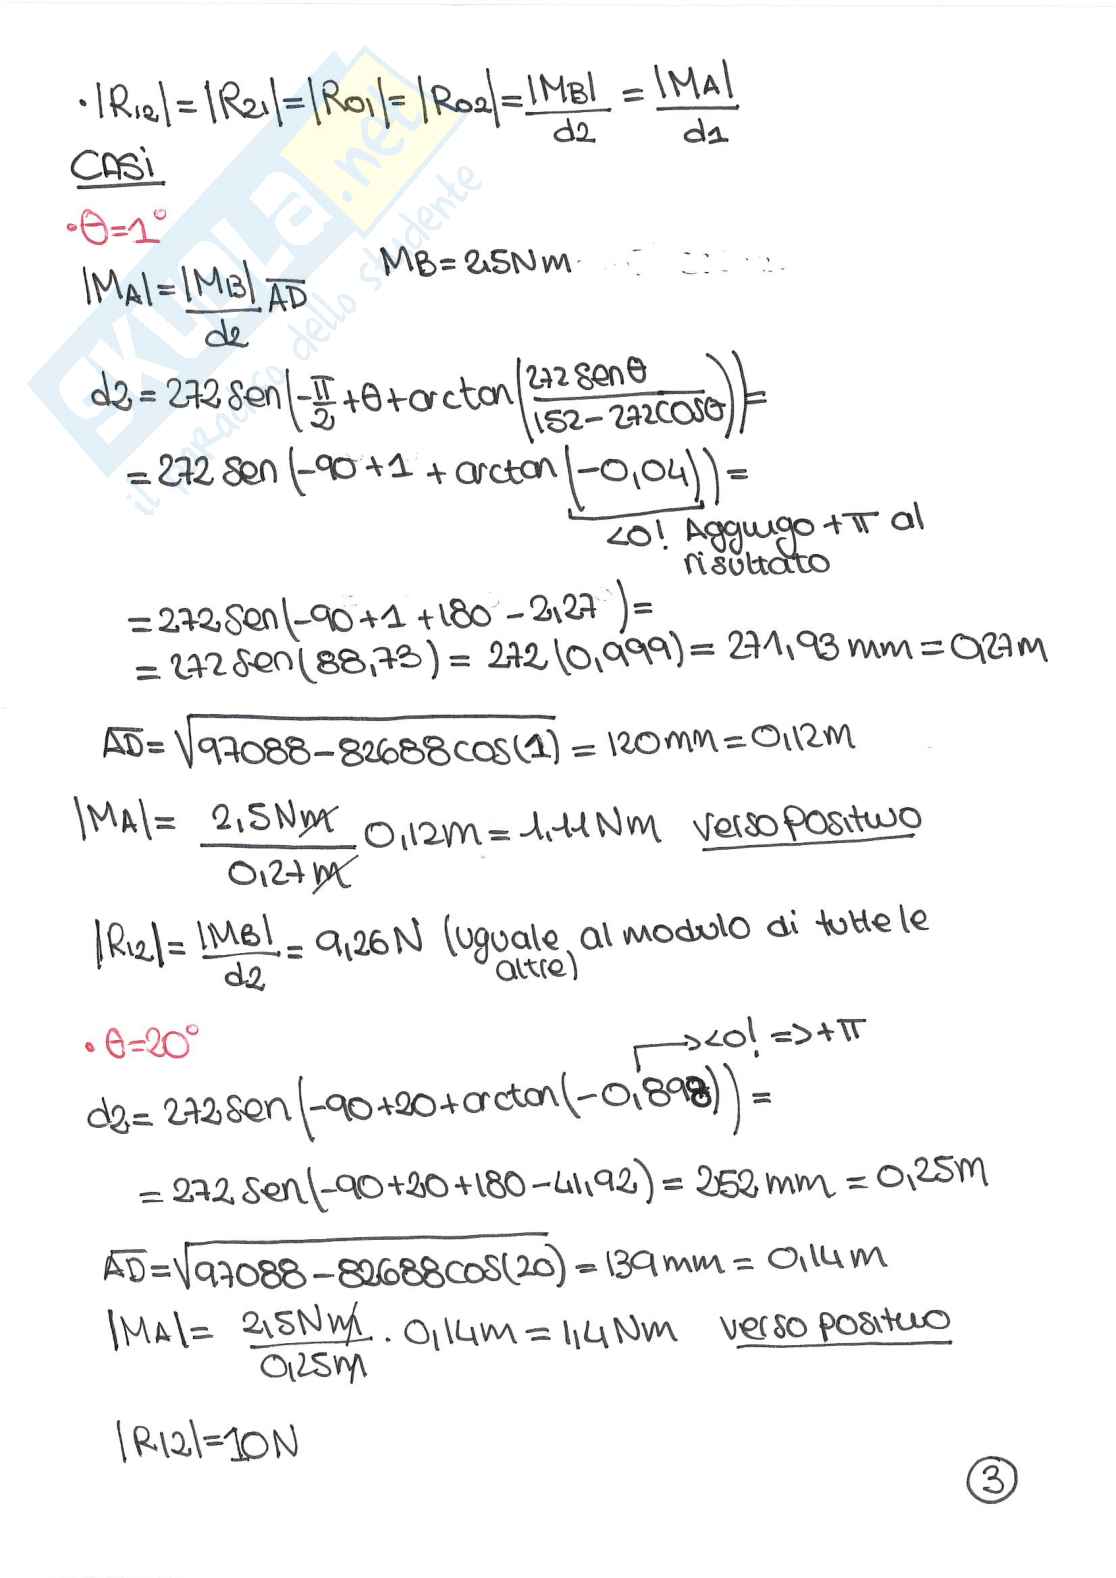 · |R12| = |R21| = |R01| = |R02| = |MB| / d2 = |MA| / d1
CASi
· θ=1°
|MA| = |MB| / d2 AD    MB = 2,5Nm
d2 = 272 sen(-π/2 + θ + arctan(272 senθ / 152 - 272cosθ)) =
= 272 sen(-90+1 + arctan(-0,04)) =
<0! Aggiungo +π al
risultato
= 272 sen(-90+1+180-2,27) =
= 272 sen(88,73) = 272(0,999) = 271,93 mm = 0,27m
AD = √97088-82688cos(1) = 120mm = 0,12m
|MA| = 2,5Nm / 0,27m 0,12m = 1,11Nm verso positivo
|R12| = |MB| / d2 = 9,26N (uguale al modulo di tutte le
altre)
· θ=20° →<0! => +π
d2 = 272 sen(-90+20+arctan(-0,898)) =
= 272 sen(-90+20+180-41,92) = 252 mm = 0,25m
AD = √97088-82688cos(20) = 139mm = 0,14m
|MA| = 2,5Nm / 0,25m · 0,14m = 1,4Nm verso positivo
|R12| = 10N
3
SKUOLA.net
il paradiso dello studente